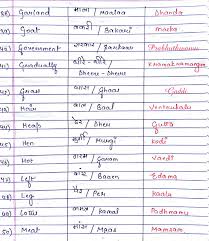 38) Garland माला / Maalaa Dhanda
39) Goat बकरी / bakari maeka
40) Government सरकार / Sarkaar Prabhuthvamu
41) Gradually धीरे-धीरे Kramakramamga
Dheere-Dheere
42) Grass घास / Ghaas Gaddi
43) Hair बाल / Baal Ventrukalu
44) Heap ढेर / Dher Gutta
45) Hen मुर्गी / Murgi Kodi
46) Hot गरम / Garam Vaedi
47) Left बायें / Baaen Edama
48) Leg पैर / Pair Kaalu
49) Lotus कमल / Kamal Padhmamu
50) Meat मांस / Maas Mamsam